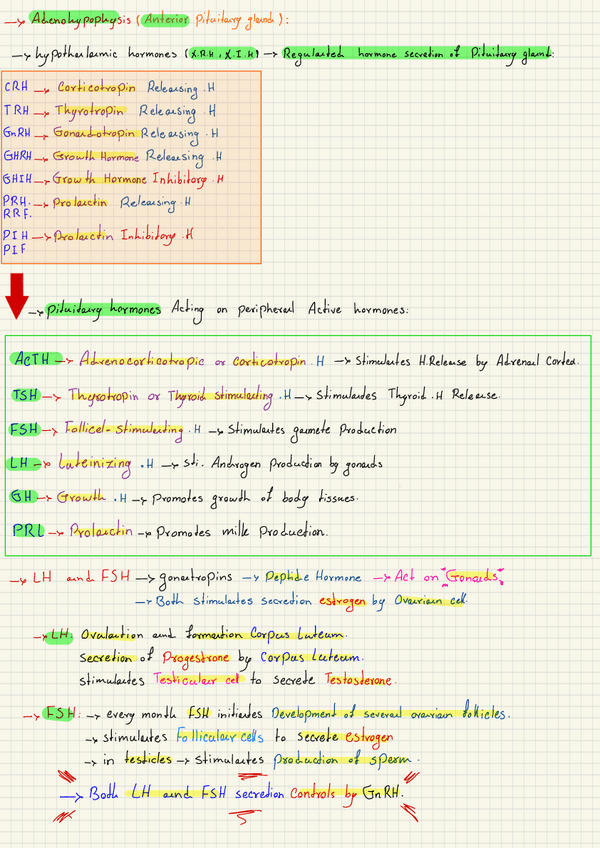 → Adenohypophysis (Anterior Pituitary gland):
→ hypothalamic hormones (X.R.H, X.I.H) → Regulasted hormone secretion of Pituitary gland:
CRH → Corticotropin Releasing .H
TRH → Thyrotropin Releasing .H
GnRH → Gonadotropin Releasing .H
GHRH → Growth Hormone Releasing .H
GHIH → Growth Hormone Inhibitory .H
PRH. → Prolactin Releasing .H
RRF.
PIH → Prolactin Inhibitory .H
PIF
→ pituitary hormones Acting on peripheral Active hormones:
AcTH → Adrenocorticotropic or corticotropin .H → Stimulates H.Release by Adrenal Cortex.
TSH → Thyrotropin or Thyroid stimulating .H → Stimulates Thyroid .H Release.
FSH → Follicel-Stimulating .H → Stimulates gamete Production
LH → Luteinizing .H → Sti. Androgen Production by gonads
GH → Growth .H → Promotes growth of body tissues.
PRL → Prolactin → Promotes milk Production.
→ LH and FSH → gonatropins → Peptide Hormone → Act on "Gonads"
→ Both stimulates secretion estrogen by Ovarian cell.
→ LH: Ovulation and formation Corpus Luteum.
Secretion of Progestrone by Corpus Luteum.
stimulates Testicular cel to secrete Testosterone.
→ FSH: → every month FSH initiates Development of several ovarian follicles.
→ stimulates Follicular cells to secrete estrogen
→ in testicles → Stimulates Production of sperm.
→ Both LH and FSH secretion Controls by GnRH.